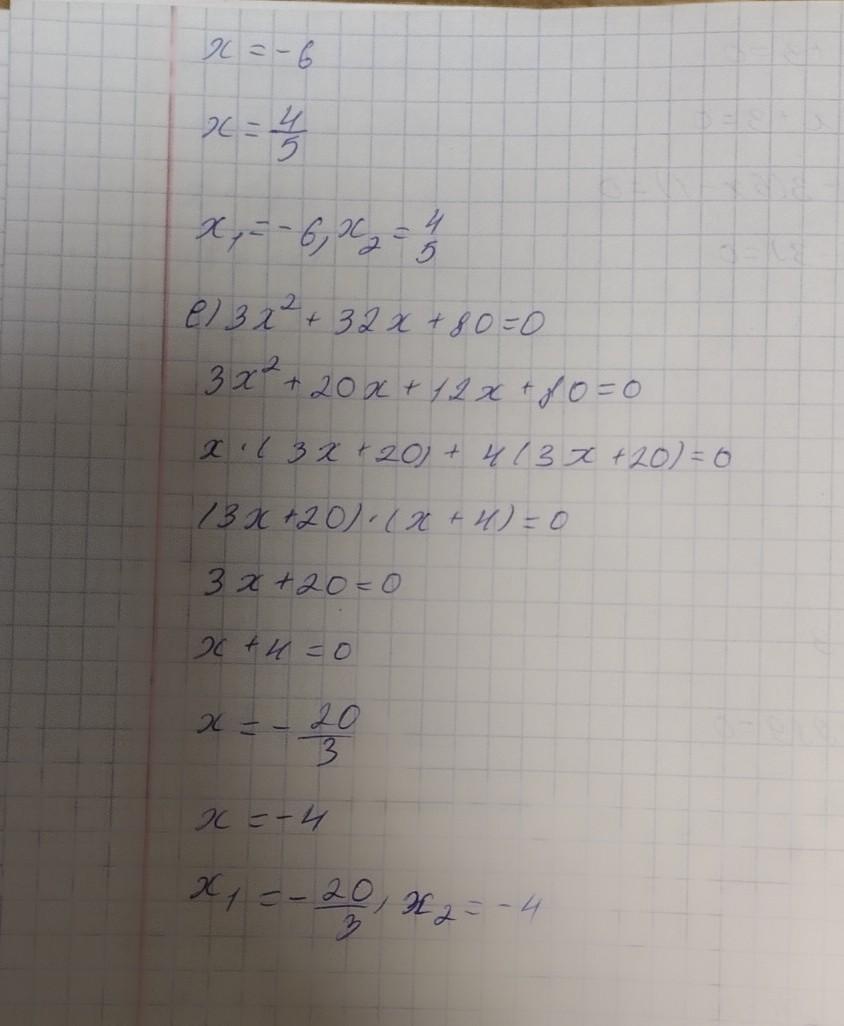 x = -6
x = 4/5
x₁ = -6, x₂ = 4/5
e) 3x² + 32x + 80 = 0
3x² + 20x + 12x + 80 = 0
x · (3x + 20) + 4(3x + 20) = 0
(3x + 20) · (x + 4) = 0
3x + 20 = 0
x + 4 = 0
x = - 20/3
x = -4
x₁ = - 20/3, x₂ = -4